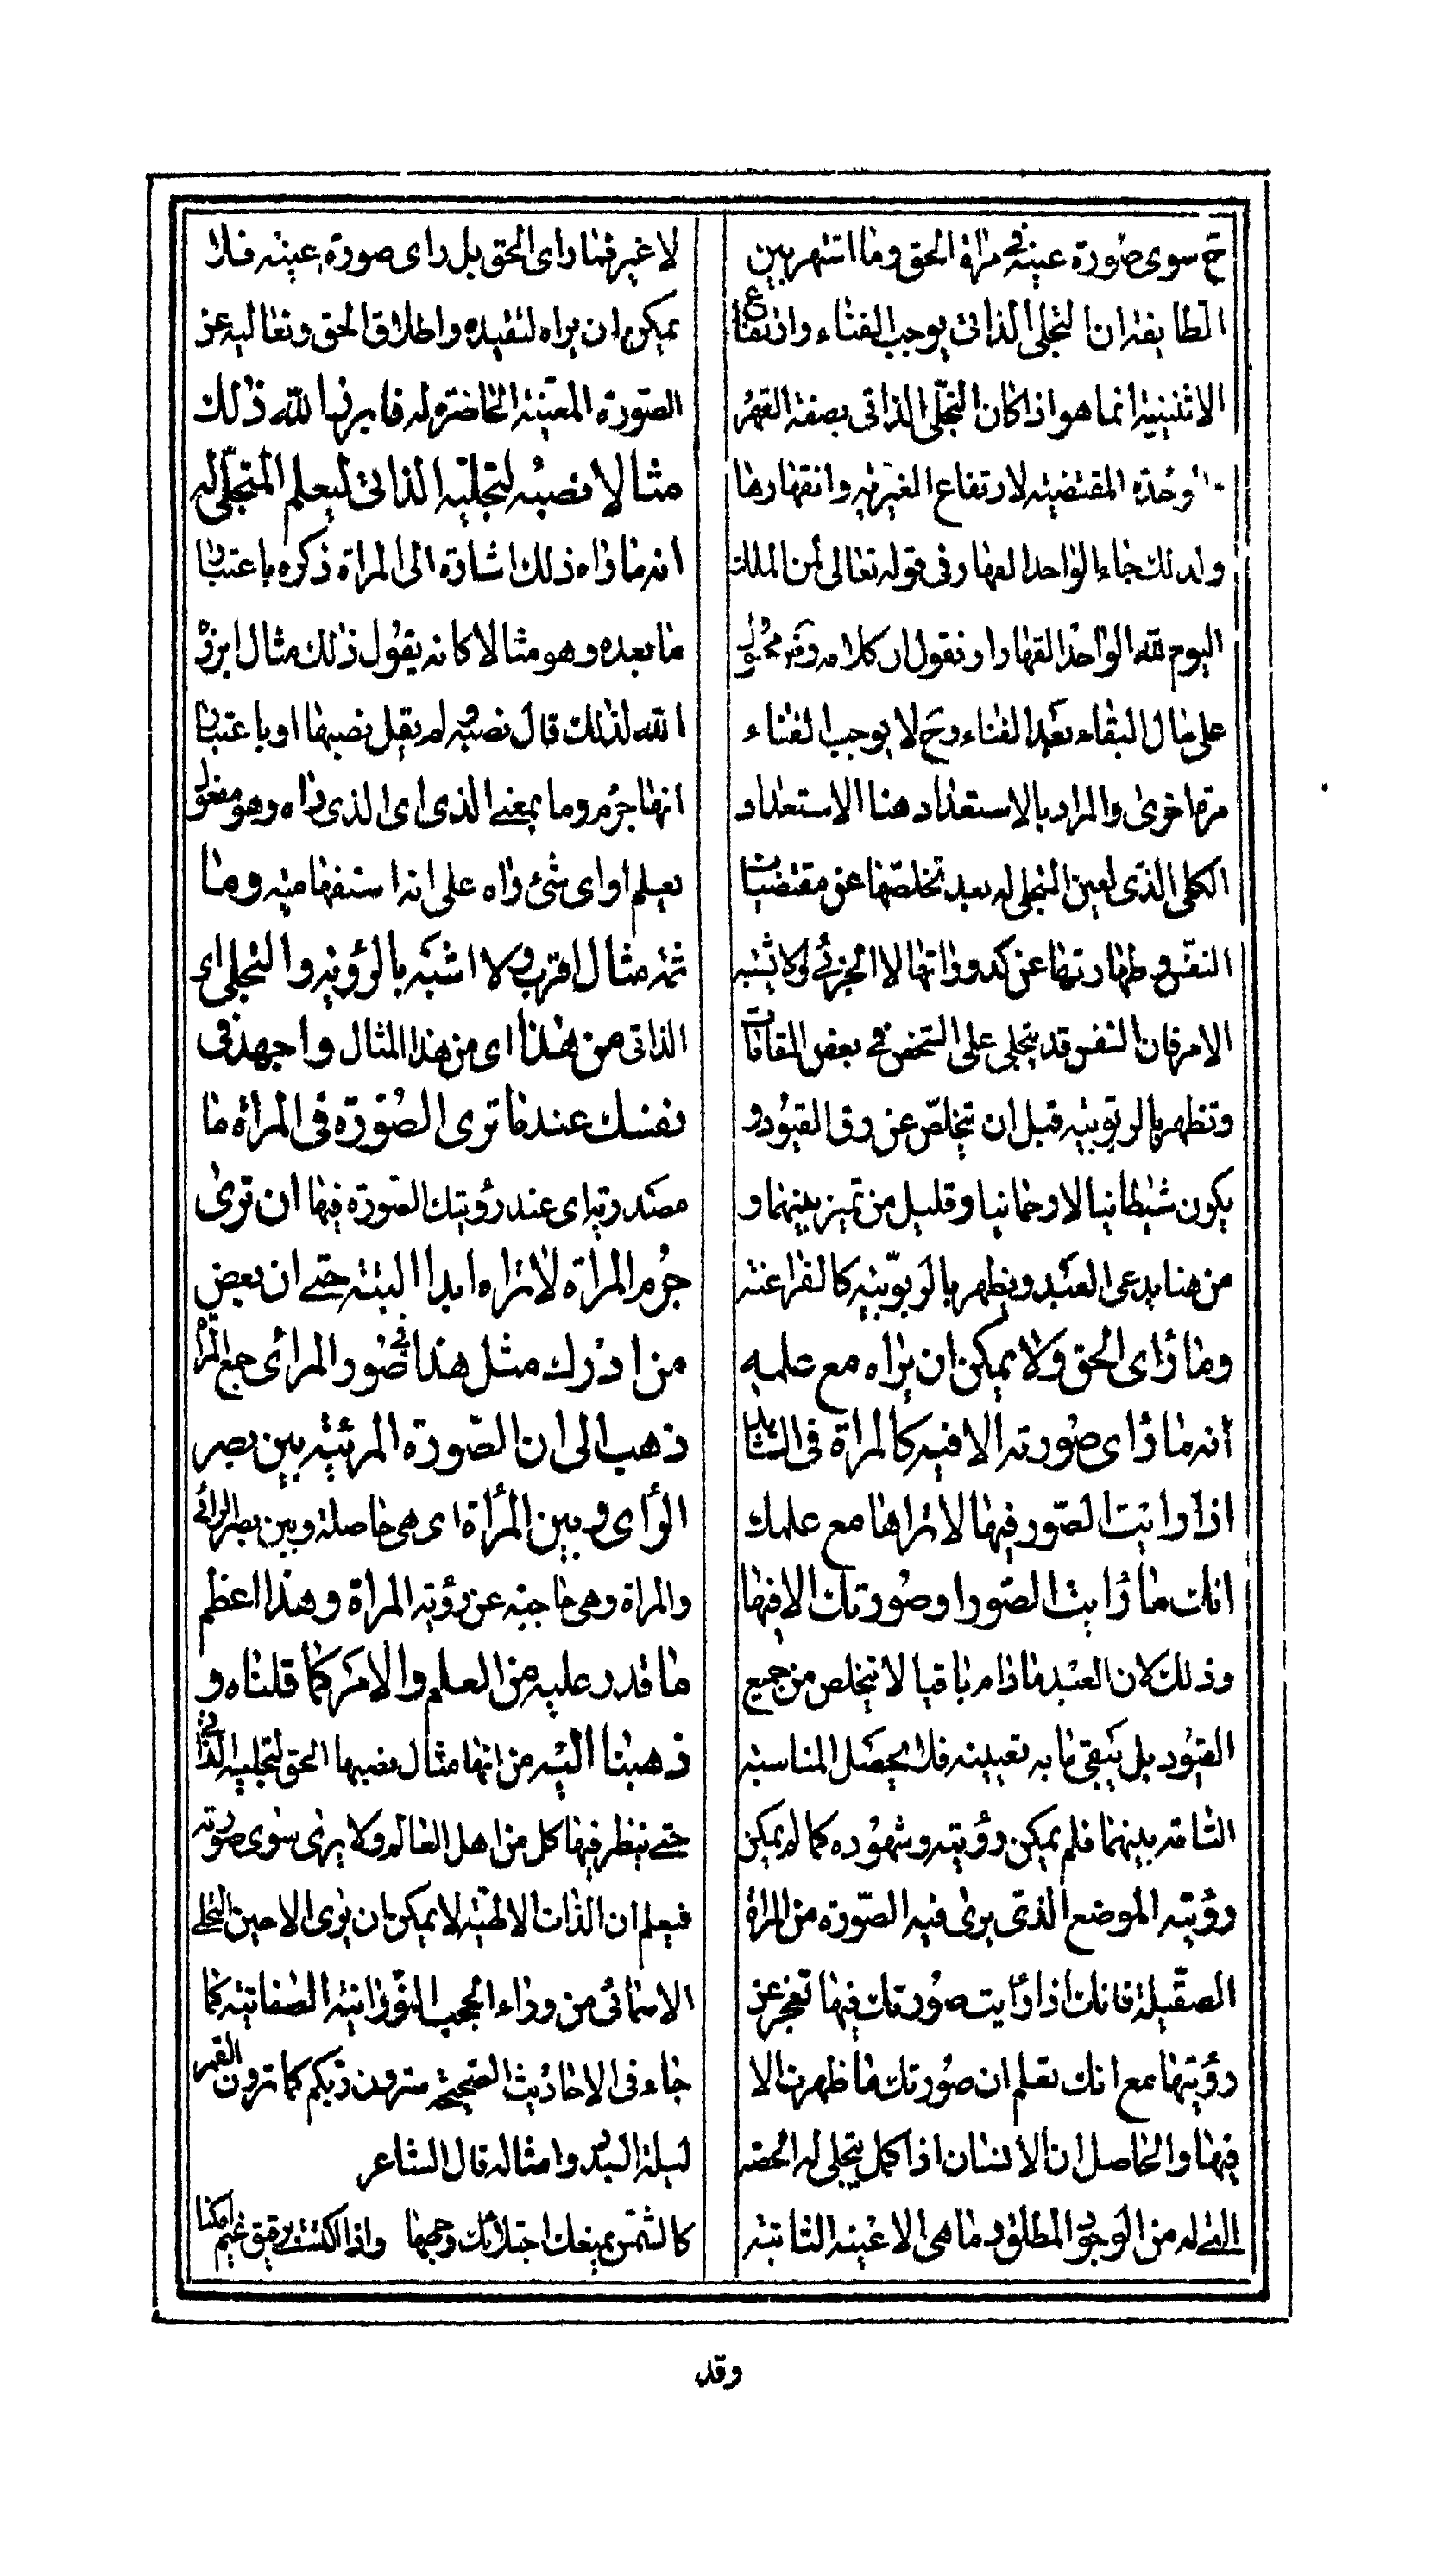 ح سوى صورة عينه في مرآة الحق وما اشتهر بين
الطايفة ان التجلى الذاتى يوجب الفناء وارتفاع
الاثنينية انما هو اذا كان التجلى الذاتى بصفة القهر
والوحدة المقتضية لارتفاع الغيرية وانقهارها
ولذلك جاء الواحد القهار فى قوله تعالى لمن الملك
اليوم لله الواحد القهار او نقول ان كلامه رض محمول
على حال البقاء بعد الفناء وح لا يوجب الفناء
مرة اخرى والمراد بالاستعداد هنا الاستعداد
الكلى الذى لعين المتجلى له بعد تخلصها عن مقتضيات
النفس وطهارتها عن كدوراتها لا الجزئى لئلا يشتبه
الامر فان النفس قد يتجلى على الشخص في بعض المقامات
وتظهر بالربوبية قبل ان تتخلص عن رق القيود و
يكون شيطانيا لا رحمانيا وقليل من تميز بينهما و
من هنا يدعى العبد ويظهر بالربوبية كالفراعنة
وما رأى الحق ولا يمكن ان يراه مع علمه
انه ما رأى صورته الا فيه كالمرآة فى الشاهد
اذا رايت الصور فيها لا تراها مع علمك
انك ما رايت الصور او صورتك الا فيها
وذلك لان العبد ما دام باقيا لا يتخلص من جميع
القيود بل يبقى ما به تعيينه فلا يحصل المناسبة
التامة بينهما فلم يمكن رؤيته وشهوده كما لم يمكن
رؤية الموضع الذى يرى فيه الصورة من المراة
الصقيلة فانك اذا رأيت صورتك فيها تعجز عن
رؤيتها مع انك تعلم ان صورتك ما ظهرت الا
فيها والحاصل ان الانسان اذا كمل يتجلى له الحصة
التى له من الوجود المطلق وما هى الا عينه الثابتة
لا غير فما راى الحق بل راى صورة عينه فلا
يمكن ان يراه لتقيده واطلاق الحق وتعاليه عن
الصورة المعينة الحاضرة له فابرز الله ذلك
مثالا نصبه لتجليه الذاتى ليعلم المتجلى له
انه ما راه ذلك اشارة الى المراة ذكره باعتبار
ما بعده وهو مثالا كانه يقول ذلك مثال ابرزه
الله لذلك قال نصبه ولم يقل نصبها او باعتبار
انها جرم وما بمعنى الذى اى الذى راه وهو مفعول
يعلم او اى شئ راه على انه استفهامية وما
ثمه مثال اقرب ولا اشبه بالرؤية والتجلى اى
الذاتى من هذا اى من هذا المثال واجهد فى
نفسك عند ما ترى الصورة فى المرأة ما
مصدرية اى عند رؤيتك الصورة فيها ان ترى
جرم المراة لا تراه ابدا البتة حتى ان بعض
من ادرك مثل هذا فى صور المرائى جمع المرآة
ذهب الى ان الصورة المرئية بين بصر
الرأى وبين المرأة اى هى حاصلة وبين بصر الرائى
والمراة وهى حاجبة عن رؤية المراة وهذا اعظم
ما قدر عليه من العلم والامر كما قلناه و
ذهبنا اليه من انها مثال نصبها الحق لتجليه الذاتى
حتى ينظر فيها كل من اهل العالم ولا يرى سوى صورته
فيعلم ان الذات الالهية لا يمكن ان يرى الا حين التجلى
الاسمائى من وراء الحجب النورانية الصفاتية كما
جاء فى الاحاديث الصحيحة سترون ربكم كما ترون القمر
ليلة البدر وامثاله قال الشاعر
كالشمس يمنعك اجتلائك وجهها واذا اكتست برقيق غيم امكنا
وقد